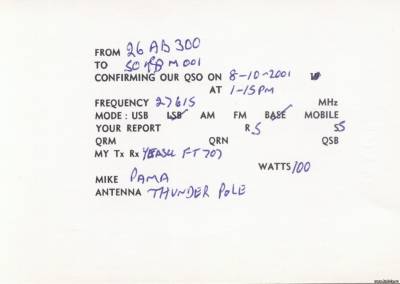 FROM 26 AB 300
TO 50 RA M 001
CONFIRMING OUR QSO ON 8-10-2001
AT 1-15PM
FREQUENCY 27615 MHz
MODE: USB LSB AM FM BASE MOBILE
YOUR REPORT R5 S5
QRM QRN QSB
MY Tx Rx YEASU FT 707
WATTS 100
MIKE PAMA
ANTENNA THUNDER POLE